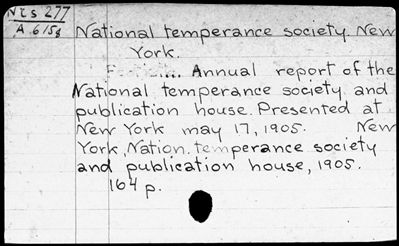 Nts 277
A 615g
National temperance society. New
York.
Annual report of the
National temperance society and
publication house. Presented at
New York may 17, 1905. New
York, Nation. temperance society
and publication house, 1905.
164 p.